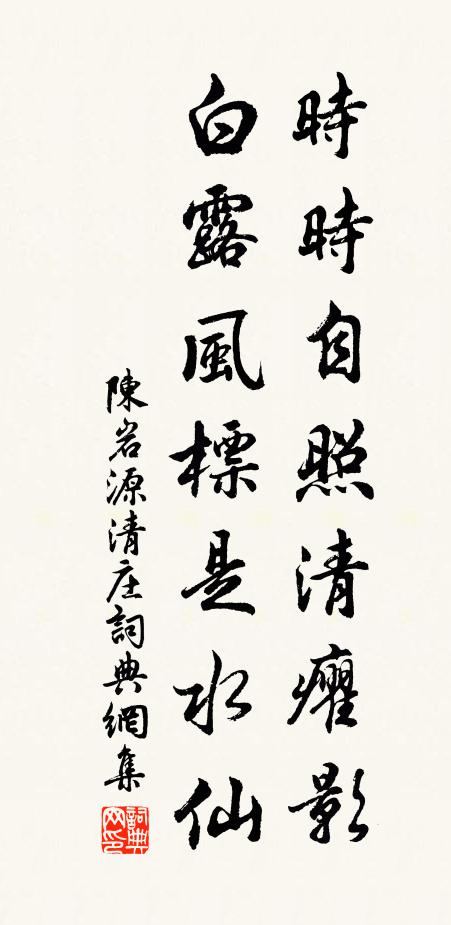 時時自照清癯影
白露風標是水仙
陳岩源清庄詞典網集
詞典網印